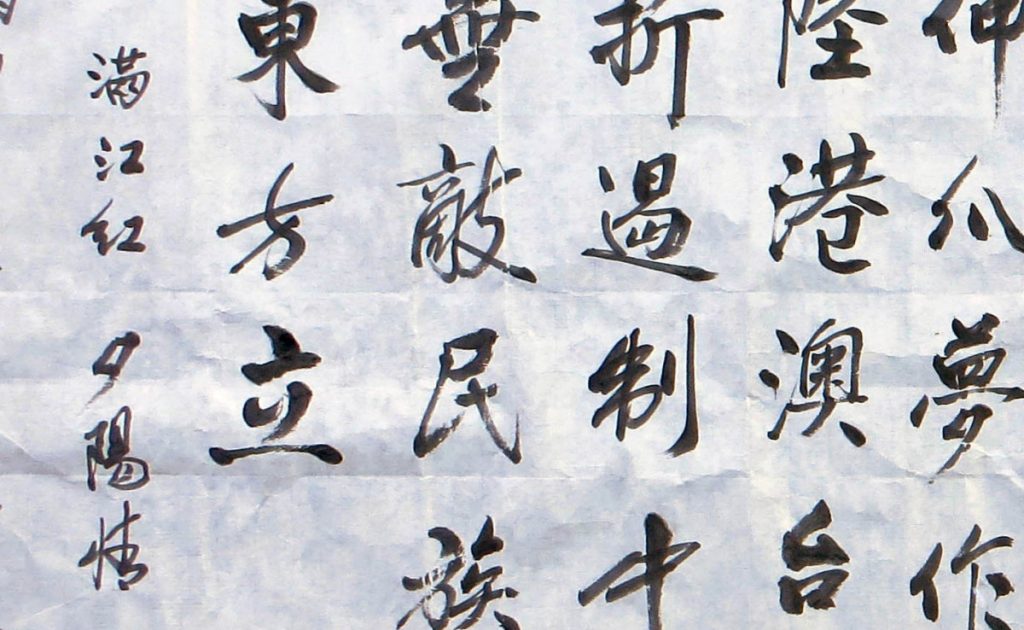 伸爪夢作
陸港澳台
折遏制中
無敵民族
東方立
满江红 夕陽情